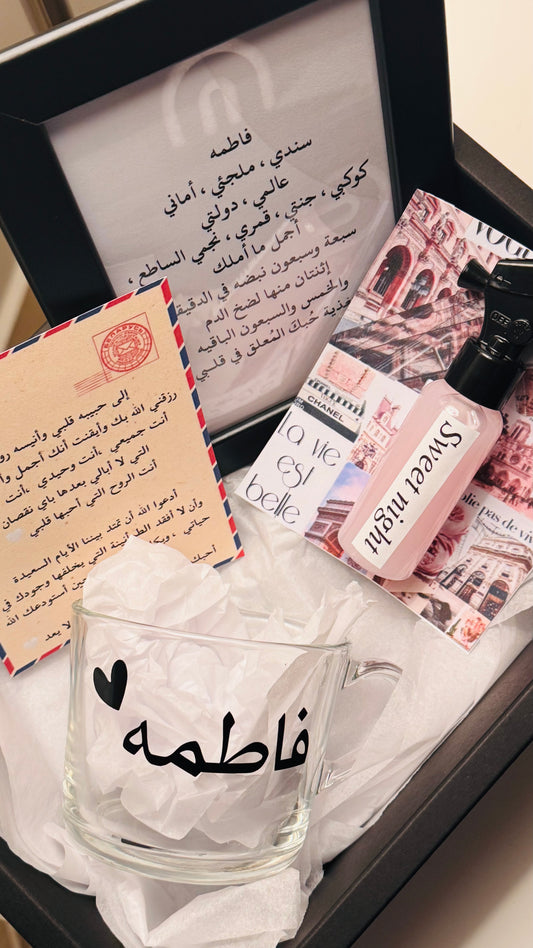 فاطمه
سندي ، ملجئي ، أماني
عالمي ، دولتي
كوكبي ، جنتي ، قمري ، نجمي الساطع ،
أجمل ما أملك
سبعة وسبعون نبضة في الدقيقة
إثنتان منها لضخ الدم
والخمس والسبعون الباقيه
حُبك المُعلق في قلبي
إلى حبيبه قلبي وأنيسه
رزقني الله بك وأيقنت أنك أجمل
أنت جميعي ،أنت وحيدي ،أنت
التي لا أبالي بعدها باي نقصان
أنت الروح التي أحبها قلبي
أدعوا الله أن تمتد بيننا الأيام السعيدة
وأن لا أفقد التي يخلفها وجودك في
حياتي ،
أستودعك الله
لا يعد
VOGUE
CHANEL
La vie
est
belle
OFF
Sweet night
olie pas de
فاطمه